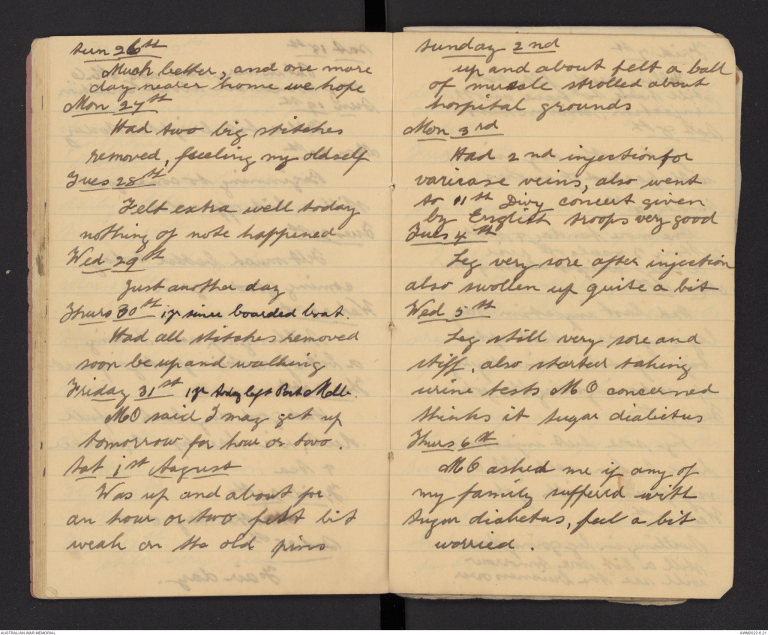 Sun 26th
Much better, and one more
day nearer home we hope
Mon 27th
Had two big stitches
removed, feeling my oldself
Tues 28th
Felt extra well today
nothing of note happened
Wed 29th
Just another day
Thurs 30th 1 yr since boarded boat
Had all stitches removed
soon be up and walking
Friday 31st 1 yr today left Port Melb.
MO said I may get up
tomorrow for hour or two.
Sat 1st August
Was up and about for
an hour or two felt bit
weak on the old pins
Sunday 2nd
up and about felt a ball
of muscle strolled about
hospital grounds
Mon 3rd
Had 2nd injection for
varicase veins, also went
to 11th Divy concert given
by English troops very good
Tues 4th
Leg very sore after injection
also swollen up quite a bit
Wed 5th
Leg still very sore and
stiff, also starter taking
urine tests MO concerned
thinks it sugar diabietus
Thurs 6th
MO asked me if any of
my family sufferd with
sugar diabetas, feel a bit
worried.
AUSTRALIAN WAR MEMORIAL